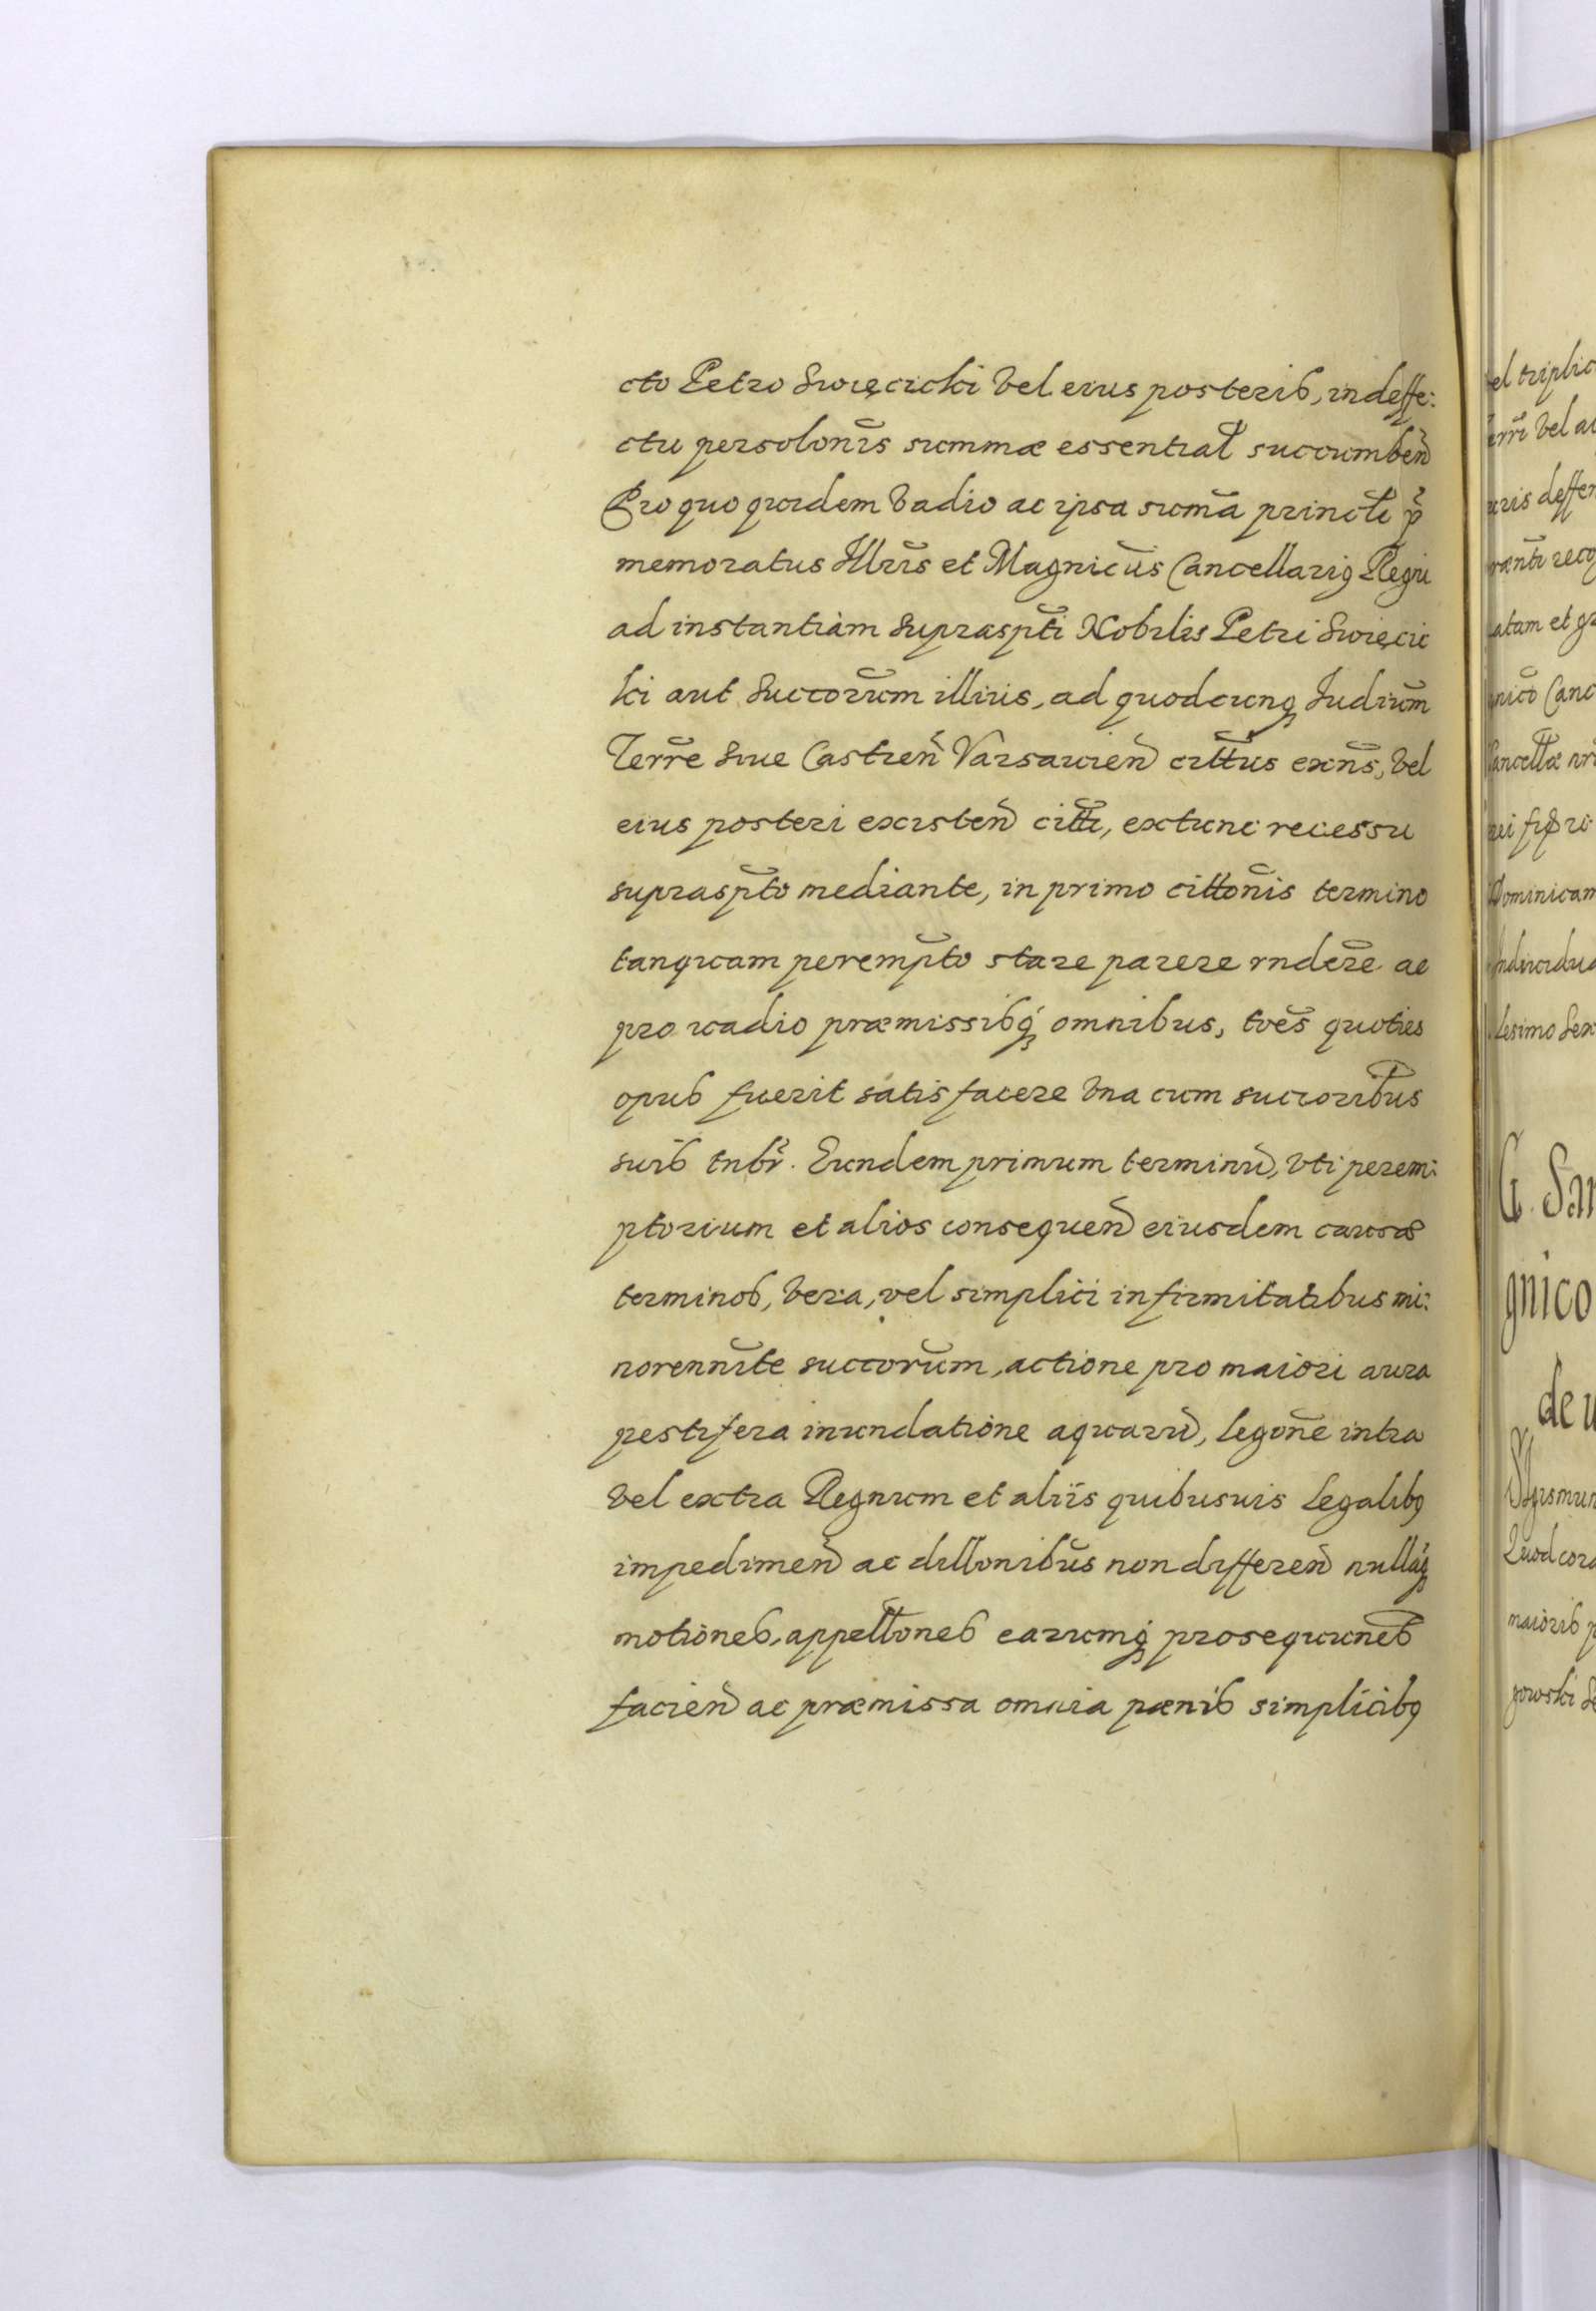 cto Petro Swięcicki vel eius posteris, in deffe:
ctu persolonĩs summæ essential̃ succumbeñ
Pro quo quidem vadio ac ipsa sum̃a princtĩ p̃
memoratus Illr̃is et Magnic̃us Cancellariꝯ Regni
ad instantiam supraspt̃i Nobilis Petri Swięcic
ki aut Succor̃um illius, ad quodcunqꝫ Judic̃ium
Terr̃e siue Castreñ Varsauieñ citt̃us exñs, vel
eius posteri existeñ citt̃i, extunc recessu
supraspt̃o mediante, in primo citton̄is termino
tanquam perempt̃o stare parere rndẽre ac
pro vadio præmissisqꝫ omnibus, toẽs quoties
opus fuerit satisfacere vna cum succorib̃us
suis tnb̃r. Eundem primum terminũ, vti perem:
ptorium et alios consequeñ eiusdem causæ
terminos, vera, vel simplici infirmitatibus mi:
norennĩte succor̃um, actione pro maiori aura
pestifera inundatione aquarũ, legoñe intra
vel extra Regnum et aliis quibusuis Legalibꝯ
impedimeñ ac dillonib̃us non differeñ nullasqꝫ
motiones, appell̃ones earumqꝫ prosequuneš
facieñ ac præmissa omnia pænis simplicibꝯ
el triplic
err̃i vel a
uris deffen
rænti reco
latam et gr
gnic̃o Canc
Cancell̃æ nr̃
rei
Dominicam
Indiuidua
lesimo Sex
G. San
gnico
de
Sigismun
Quod cora
maioris p
gowski Se